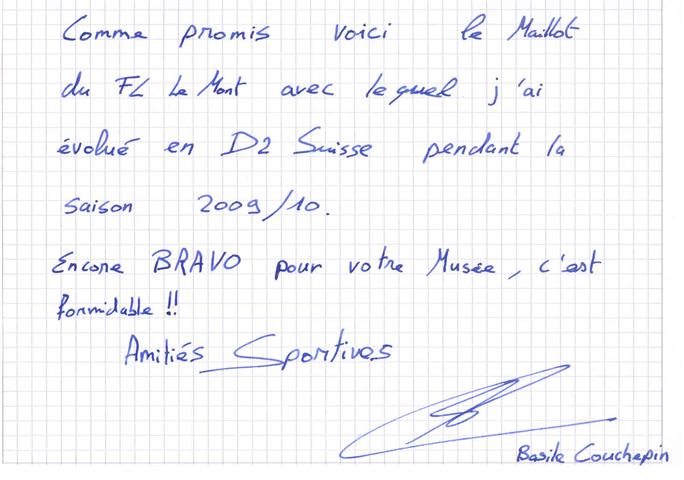 Comme promis voici le Maillot
du FC Le Mont avec lequel j'ai
évolué en D2 Suisse pendant la
saison 2009/10.
Encore BRAVO pour votre Musée, c'est
formidable !!
Amitiés Sportives
Basile Couchepin